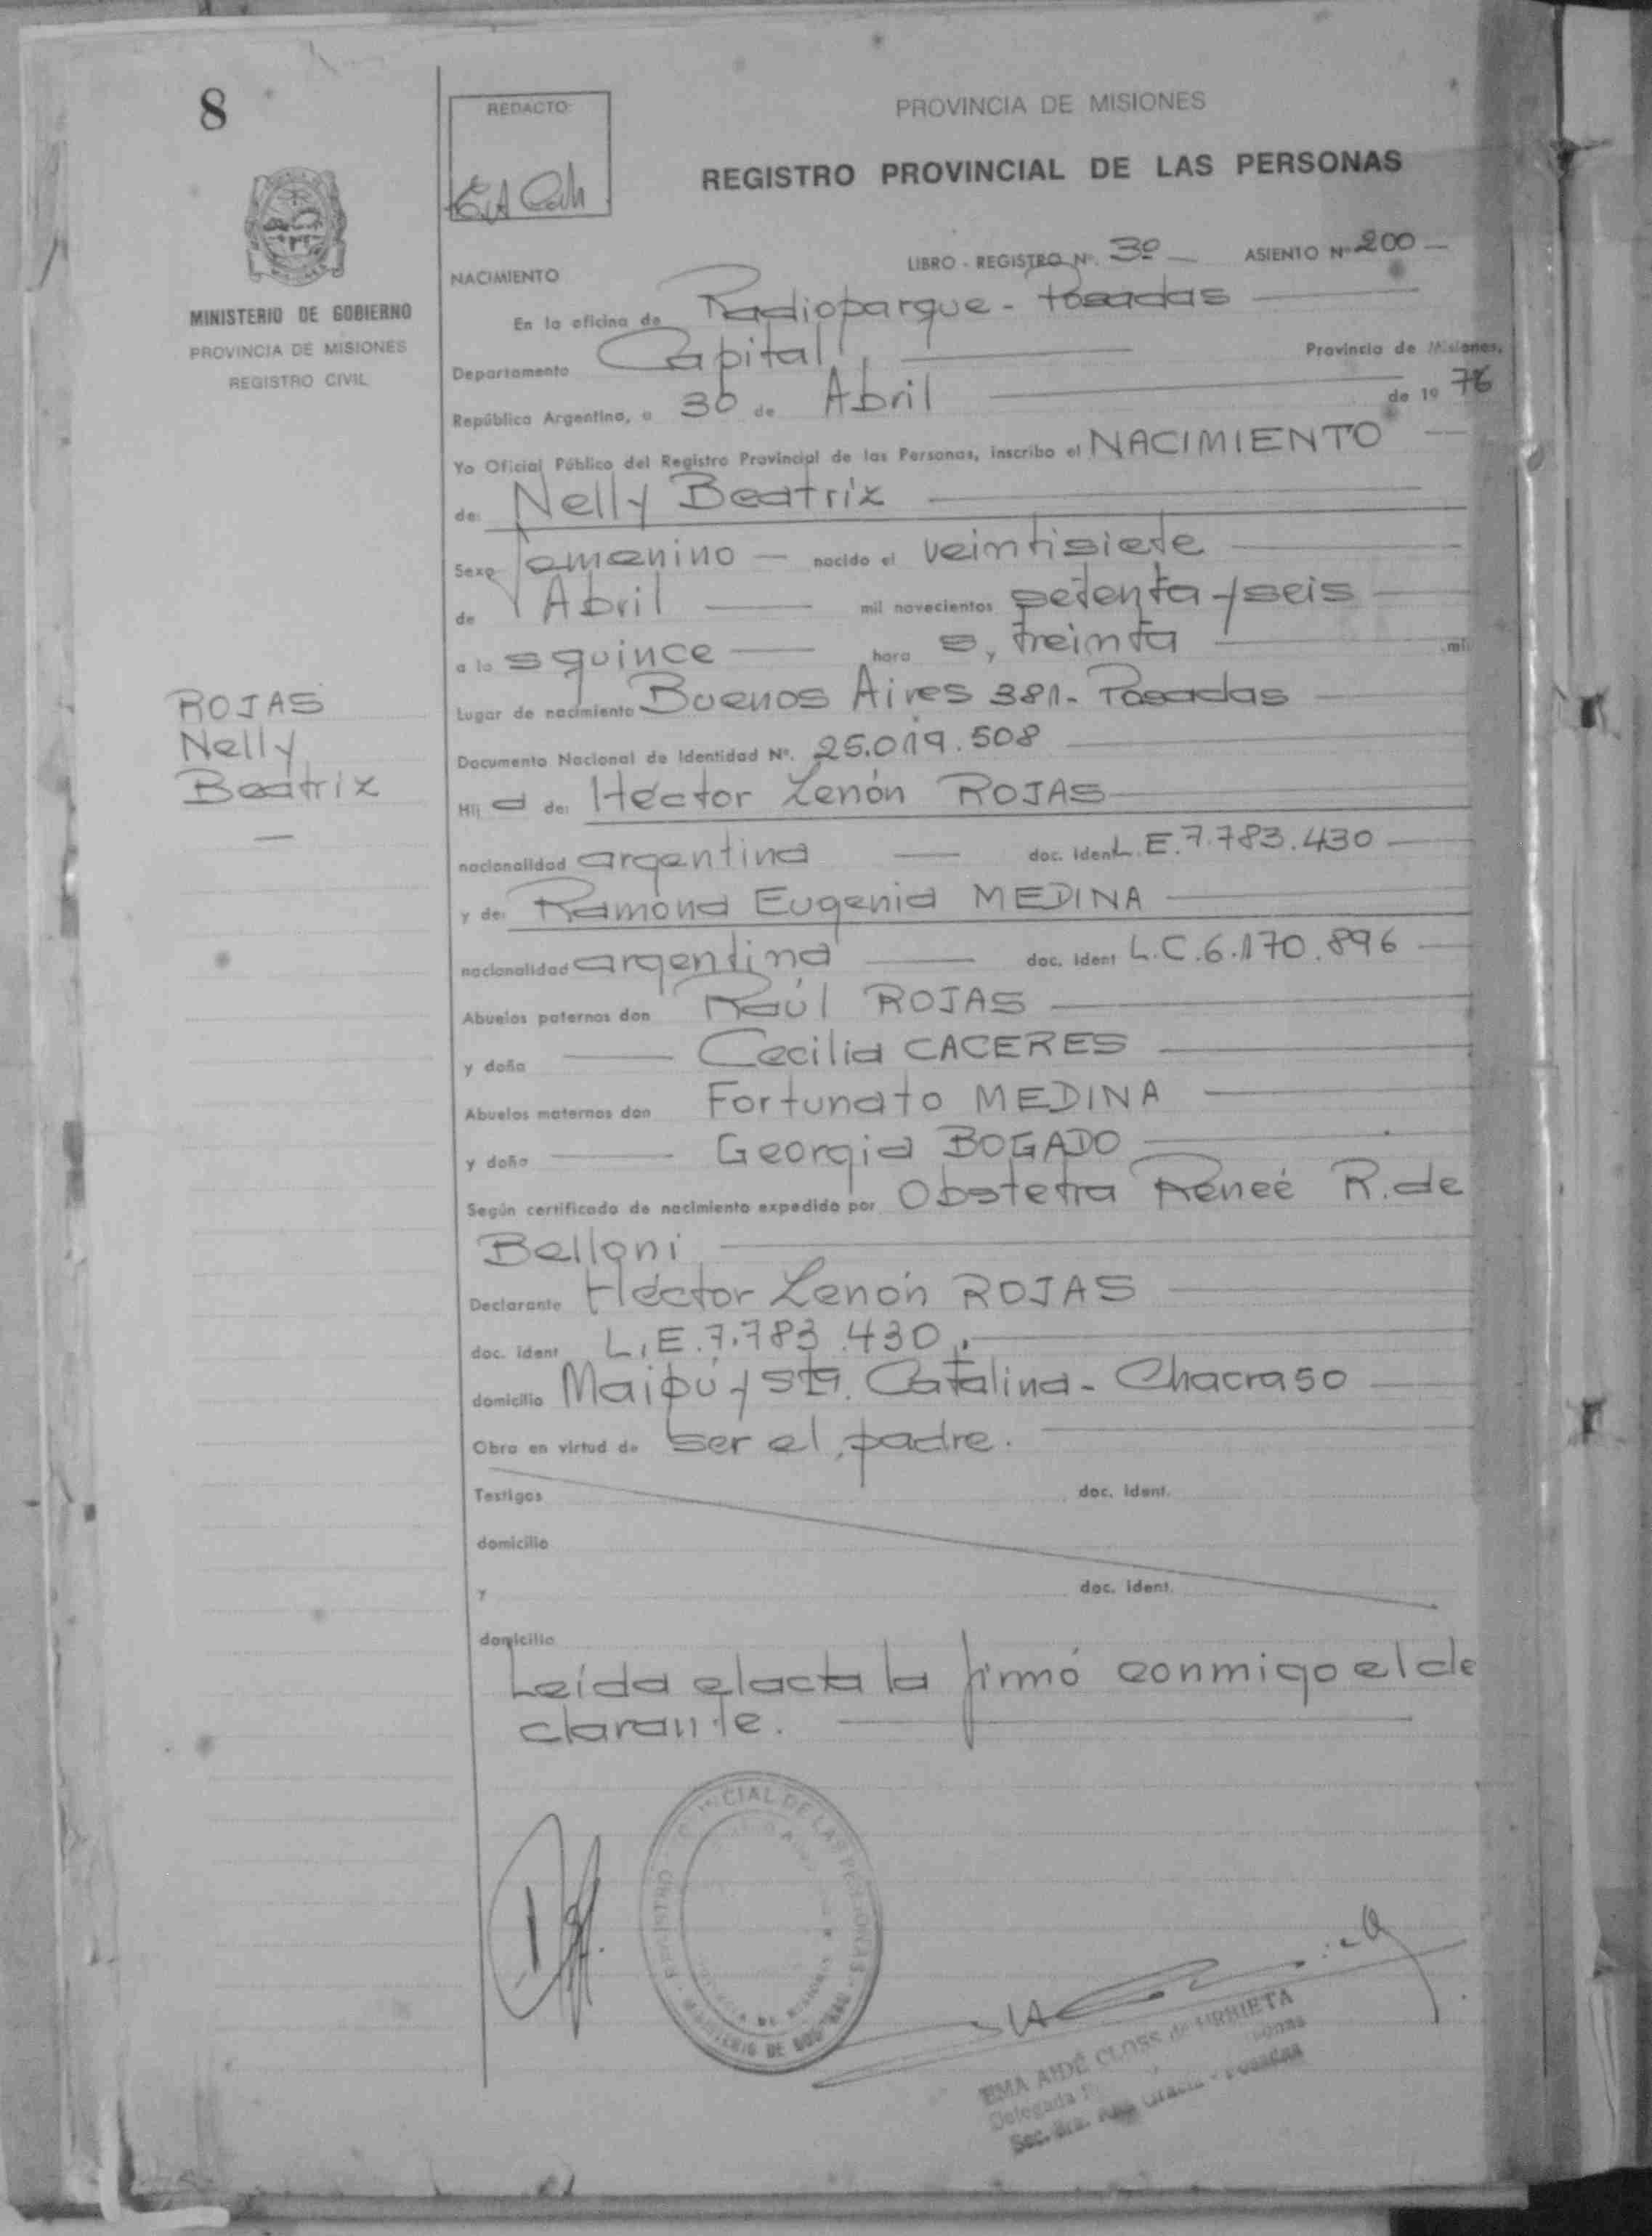 8
REDACTO:
PROVINCIA DE MISIONES
REGISTRO PROVINCIAL DE LAS PERSONAS
MINISTERIO DE GOBIERNO
PROVINCIA DE MISIONES
REGISTRO CIVIL
LIBRO - REGISTRO Nº. 3º ASIENTO Nº 200
NACIMIENTO
En la oficina de Radioparque - Posadas
Departamento Capital, Provincia de Misiones,
República Argentina, a 30 de Abril de 19 76
Yo Oficial Público del Registro Provincial de las Personas, inscribo el NACIMIENTO
de: Nelly Beatriz
Sexo femenino nacido el veintisiete
de Abril mil novecientos setenta y seis
a la s quince hora s, y treinta mi
Lugar de nacimiento Buenos Aires 381 - Posadas
Documento Nacional de Identidad Nº. 25.019.508
Hij a de: Héctor Zenón ROJAS
nacionalidad argentina doc. ident L.E. 7.783.430
y de: Ramona Eugenia MEDINA
nacionalidad argentina doc. ident L.C. 6.170.896
Abuelos paternos don Raúl ROJAS
y doña Cecilia CACERES
Abuelos maternos don Fortunato MEDINA
y doña Georgia BOGADO
Según certificado de nacimiento expedido por Obstetra Reneé R. de
Belloni
Declarante Héctor Zenón ROJAS
doc. ident L.E. 7.783.430,
domicilio Maipú y Sta. Catalina - Chacra 50
Obra en virtud de ser el padre.
Testigos doc. ident.
domicilio
y doc. ident.
domicilio
Leída el acta la firmó conmigo el de
clarante.
ROJAS
Nelly
Beatriz
REGISTRO PROVINCIAL DE LAS PERSONAS - MINISTERIO DE GOBIERNO
EMA AIDÉ CLOSS de URRIETA
Delegada